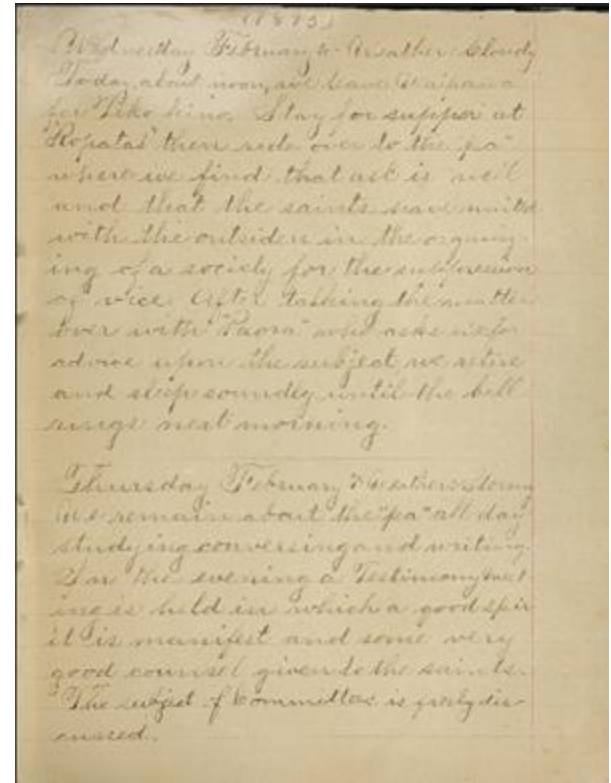 (1895)
Wednesday February 6 Weather Cloudy
Today about noon, we leave Waipawa
for Tikokino. Stay for supper at
"Ropatas" then ride over to the "pa"
where we find that all is well
and that the saints have united
with the outsiders in the organiz-
ing of a society for the suppression
of vice. After talking the matter
over with "Paora" who asks us for
advice upon the subject we retire
and sleep soundly until the bell
rings next morning.
Thursday February 7 Weather Stormy
We remain about the "pa" all day
studying conversing and writing.
In the evening a Testimony meet
ing is held in which a good spir
it is manifest and some very
good counsel given to the saints.
The subject of Committees is freely dis
cussed.